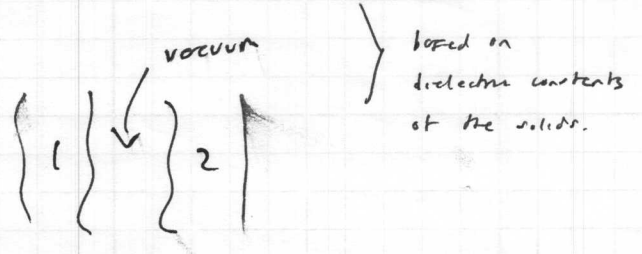 vacuum
based on
dielectric constants
of the solids.
1 2